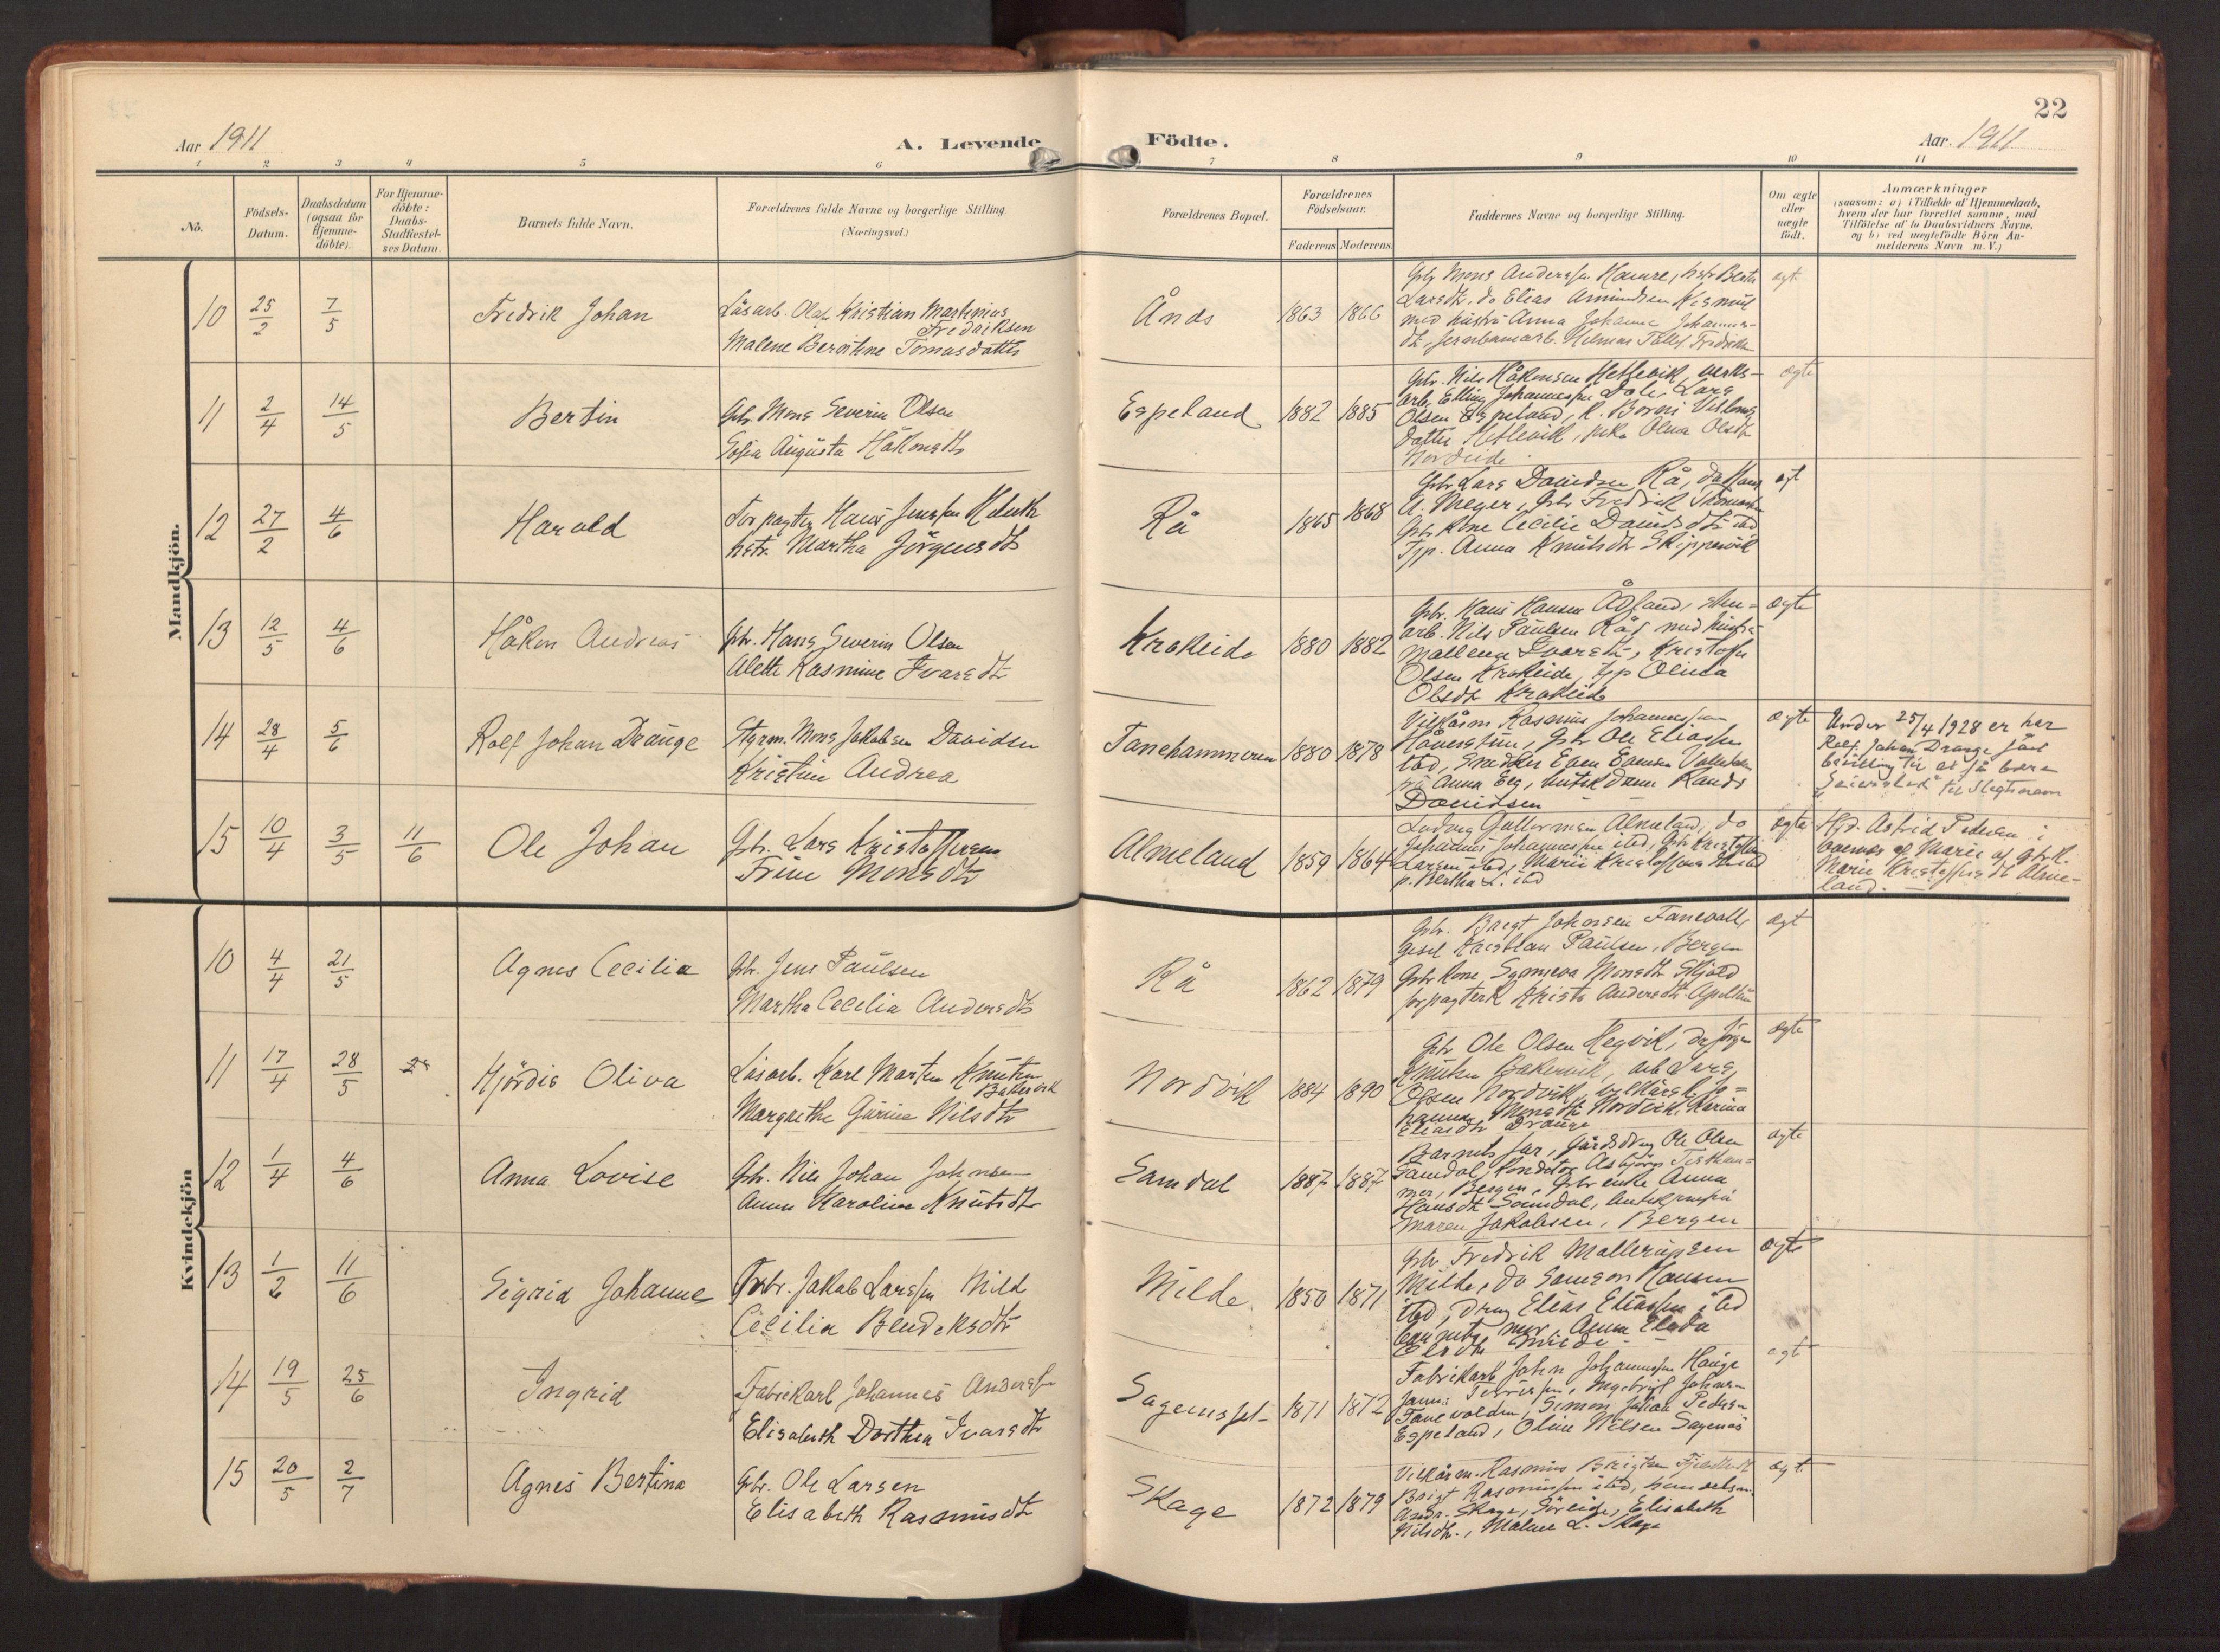 22
Aar 1911
A. Levende Födte.
Aar. 1911
1 2 3 4 5 6 7 8 9 10 11
No.
Födsels-
Datum.
Daabsdatum
(ogsaa for
Hjemme-
döbte).
For Hjemme-
döbte:
Daabs-
Stadfæstel-
ses Datum.
Barnets fulde Navn.
Forældrenes fulde Navne og borgerlige Stilling.
(Næringsvei.)
Forældrenes Bopæl.
Forældrenes
Födselsaar.
Faderens Moderens
Faddernes Navne og borgerlige Stilling.
Om ægte
eller
uægte
födt.
Anmærkninger
(saasom: a) i Tilfælde af Hjemmedaab,
hvem der har forrettet samme, med
Tilföielse af to Daabsvidners Navne.
og b) ved uægtefödte Börn An-
melderens Navn m. V.)
Mandkjön.
10 25/2 7/5 Fredrik Johan
Lösarb. Olaf Kristian Martinius
Fredriksen
Malene Tomasdatter
1863 1866
Gbr Mons Anderssen Hamre, hstr Berta
Larsdtr, do Elias Amundsen
med hustru Anna Johanne Johannes-
dtr, jernbanearb. Hilmar
ægt
11 2/4 14/5 Bertin
Gbr. Mons Severin Olsen
Sofia Augusta Håkonsdtr
Espeland 1882 1885
Gbr. Nils Håkonsen Hetlevik, verks-
arb. Elling Johannessen Lars
Olsen Espeland, k. Borni
datter Hetlevik, pike Olsdtr
Nordeide
ægte
12 27/2 4/6 Harold
Forpagter Hans Jenssen
hstr. Martha Jörgensdtr
Rå 1865 1868
Gbr Lars Davidsen Rå, do Hans
A. Meyer, Gbr Fredrik
Gbr kone Cecilie Davidsdtr ibd
Tjp. Anna Knutsdtr Skippervik
ægt
13 12/5 4/6 Håkon Andreas
Gbr. Hans Severin Olsen
Alette Rasmine Ivarsdtr
Krokeide 1880 1882
Gbr. Hans Hansen Ådland, sten-
arb. Nils Paulsen Rå med hustru
Mallena Ivarsdtr, Kristoffer
Olsen Krokeide, tjp Olina
Olsdtr Krokeide
ægte
14 28/4 5/6 Rolf Johan Drange
Styrm. Mons Jakobsen Davidsen
Kristine Andrea
Fanehammeren 1880 1878
Vilkårsm Rasmus Johannessen
Gbr Ole Eliassen
ibd, Snedker Even Evensen
frk Anna Eeg, butikdame
Davidsen
ægte
Under 25/4 1928 er her
Rolf Johan Drange fået
bevilling til at få bære
til slegtsnavn
15 10/4 3/5 11/6 Ole Johan
Gbr. Lars Kristoffersen
Trine Monsdtr
Almeland 1859 1864
Ludvig Almeland, do
Johannes Johannessen ibd, Gbr Kristoffer
Larsen ibd, Marie Kristoffersdtr ibd
p. Bertha L. ibd
ægte
Hjd. Astrid Pedersen i
nærvær af Marie og gbr.k.
Marie Kristoffersdtr Alme-
land.
Kvindekjön
10 4/4 21/5 Agnes Cecilia
Gbr. Jens Paulsen
Martha Cecilia Andersdtr
Rå 1862 1879
Gbr. Brigt Johansen Fanevold,
Gesel Kristian Paulsen, Bergen
Gbr kone Synneva Monsdtr Skjold
forpagterk Kristi Andersdtr Apeltun
ægt
11 17/4 28/5 Hjördis Oliva
Lösarb. Karl Marten Knutsen
Bakervik
Margrethe Gurine Nilsdtr
Nordvik 1884 1890
Gbr Ole Olsen Hegvik, do Jörgen
Knutsen Bakervik, arb Lars
Olsen Nordvik, vilkårsk. Jo-
hanna Monsdtr Nordvik, Karina
Eliasdtr Drange
ægte
12 1/4 4/6 Anna Lovise
Gbr. Nils Johan Johnsen
Anna Karoline Knutsdtr
Samdal 1887 1887
Barnets far, Gårdsdrg Ole Olsen
Samdal, Konditor Asbjörn
Bergen, Gbr enke Anna
Hansdtr Samdal, butikjomfru
Maren Jakobsen, Bergen
ægte
13 1/2 11/6 Sigrid Johanne
Gbr. Jakob Larssen Mild
Cecilia Bendiksdtr
Milde 1850 1871
Gbr Fredrik Mallerupsen
Milde, do Samson Hansen
ibd, drng Elias Eliassen ibd
barnets mor, Anna
Milde
ægte
14 19/5 25/6 Ingrid
Fabrikarb Johannes Anderssen
Elisabeth Dorthea Ivarsdtr
1871 1872
Fabrikarb John Johannessen Hauge
Ingebrigt Johnsen
Fanevolden, Simon Johan Pedersen
Espeland, Oline Nilsen Sagenæs
ægt
15 20/5 2/7 Agnes Bertina
Gbr. Ole Larsen
Elisabeth Rasmusdtr
Skage 1872 1879
Vilkårsm. Rasmus Brigtsen
Brigt Rasmussen ibd, handelsm.
Andr. Skage, Söreide, Elisabeth
Nilsdtr., Malene L. Skage
ægt